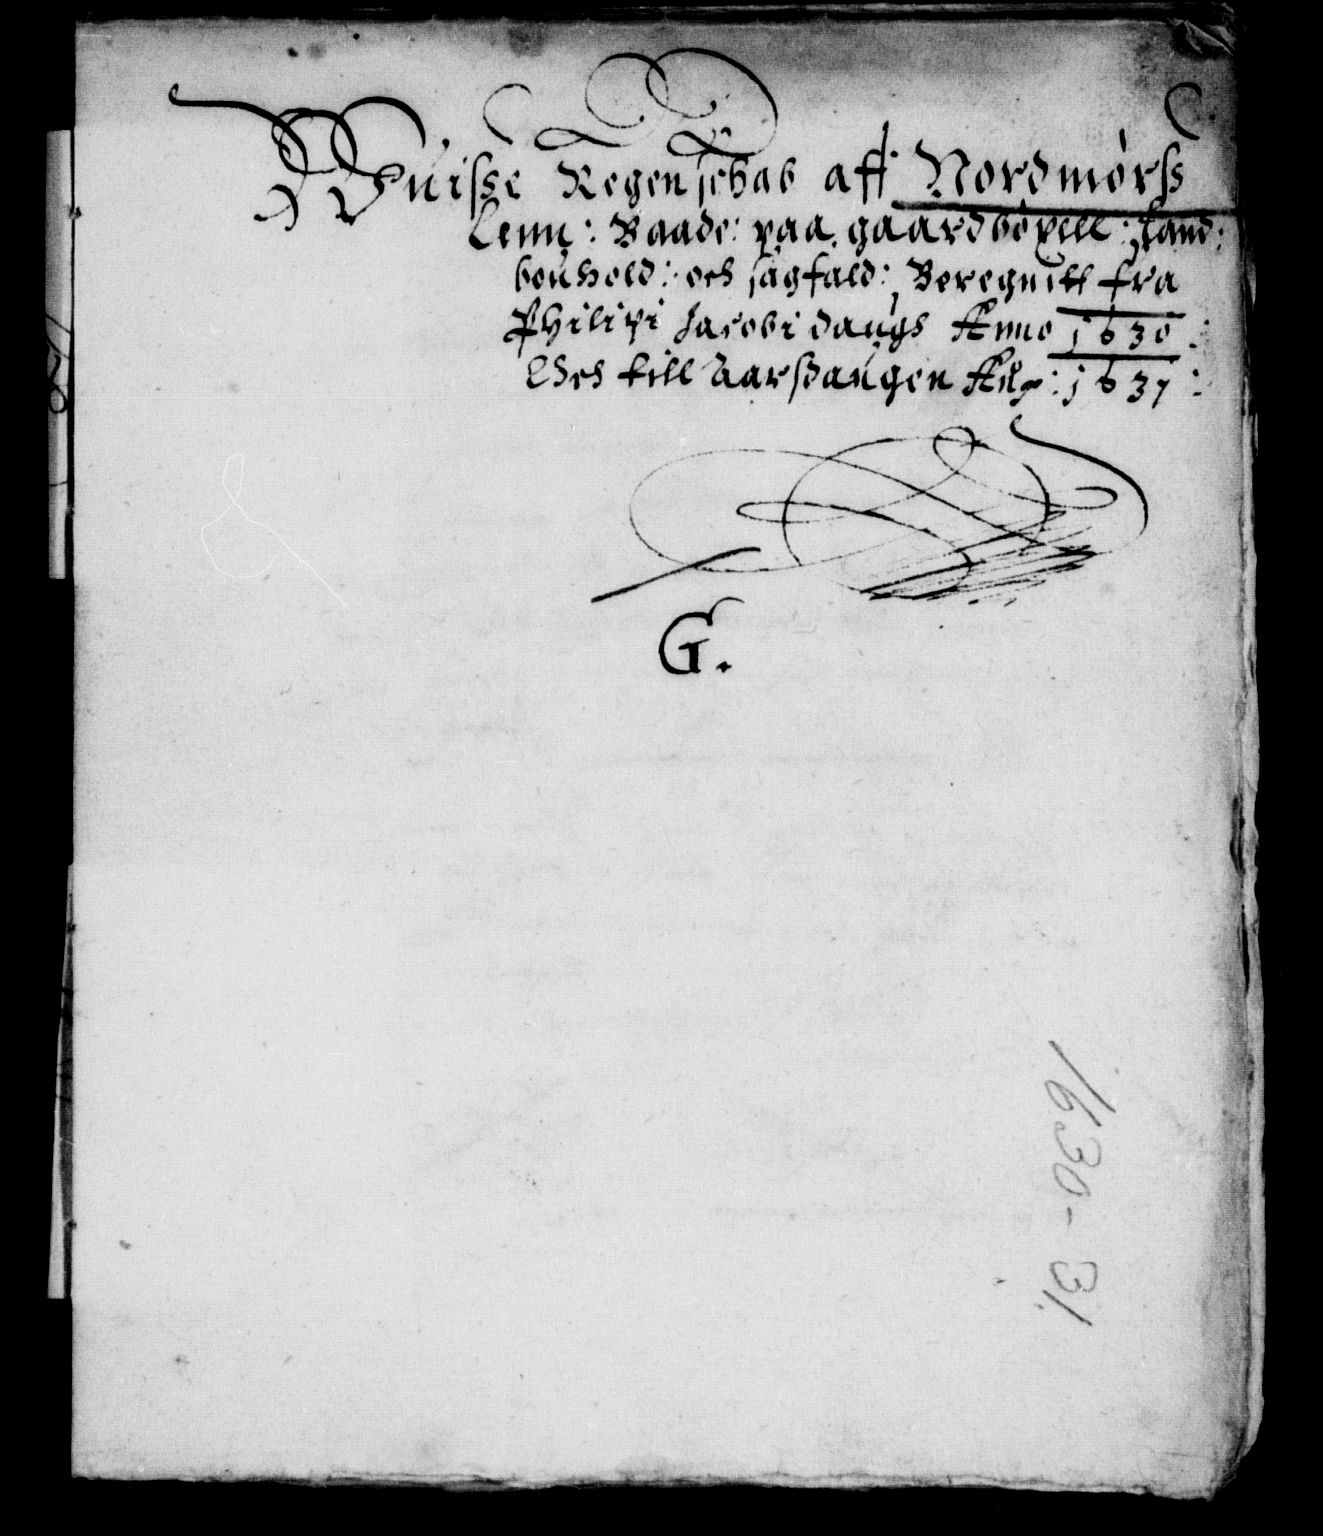 Wuisse Regenschab aff Nordmørss
Lenn: Baade: paa gaardbøxell: Land:
bouhold: och sagfald: Beregnitt fra
Philipi Jacobi daugs Anno 1630:
Och till Aarsdaugen 1631:
G.
1630-31.